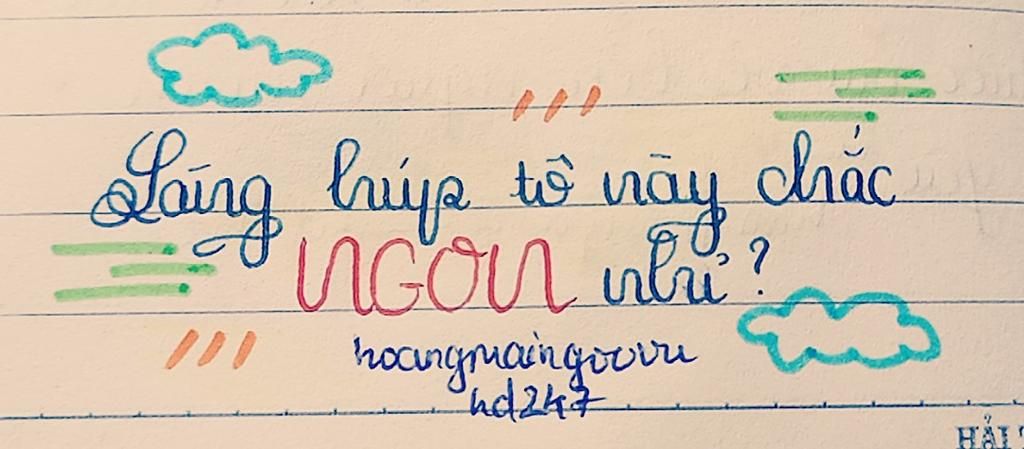 Sáng húp tô này chắc
NGON nhỉ?
hoangmaingovvu
hd247
HẢI